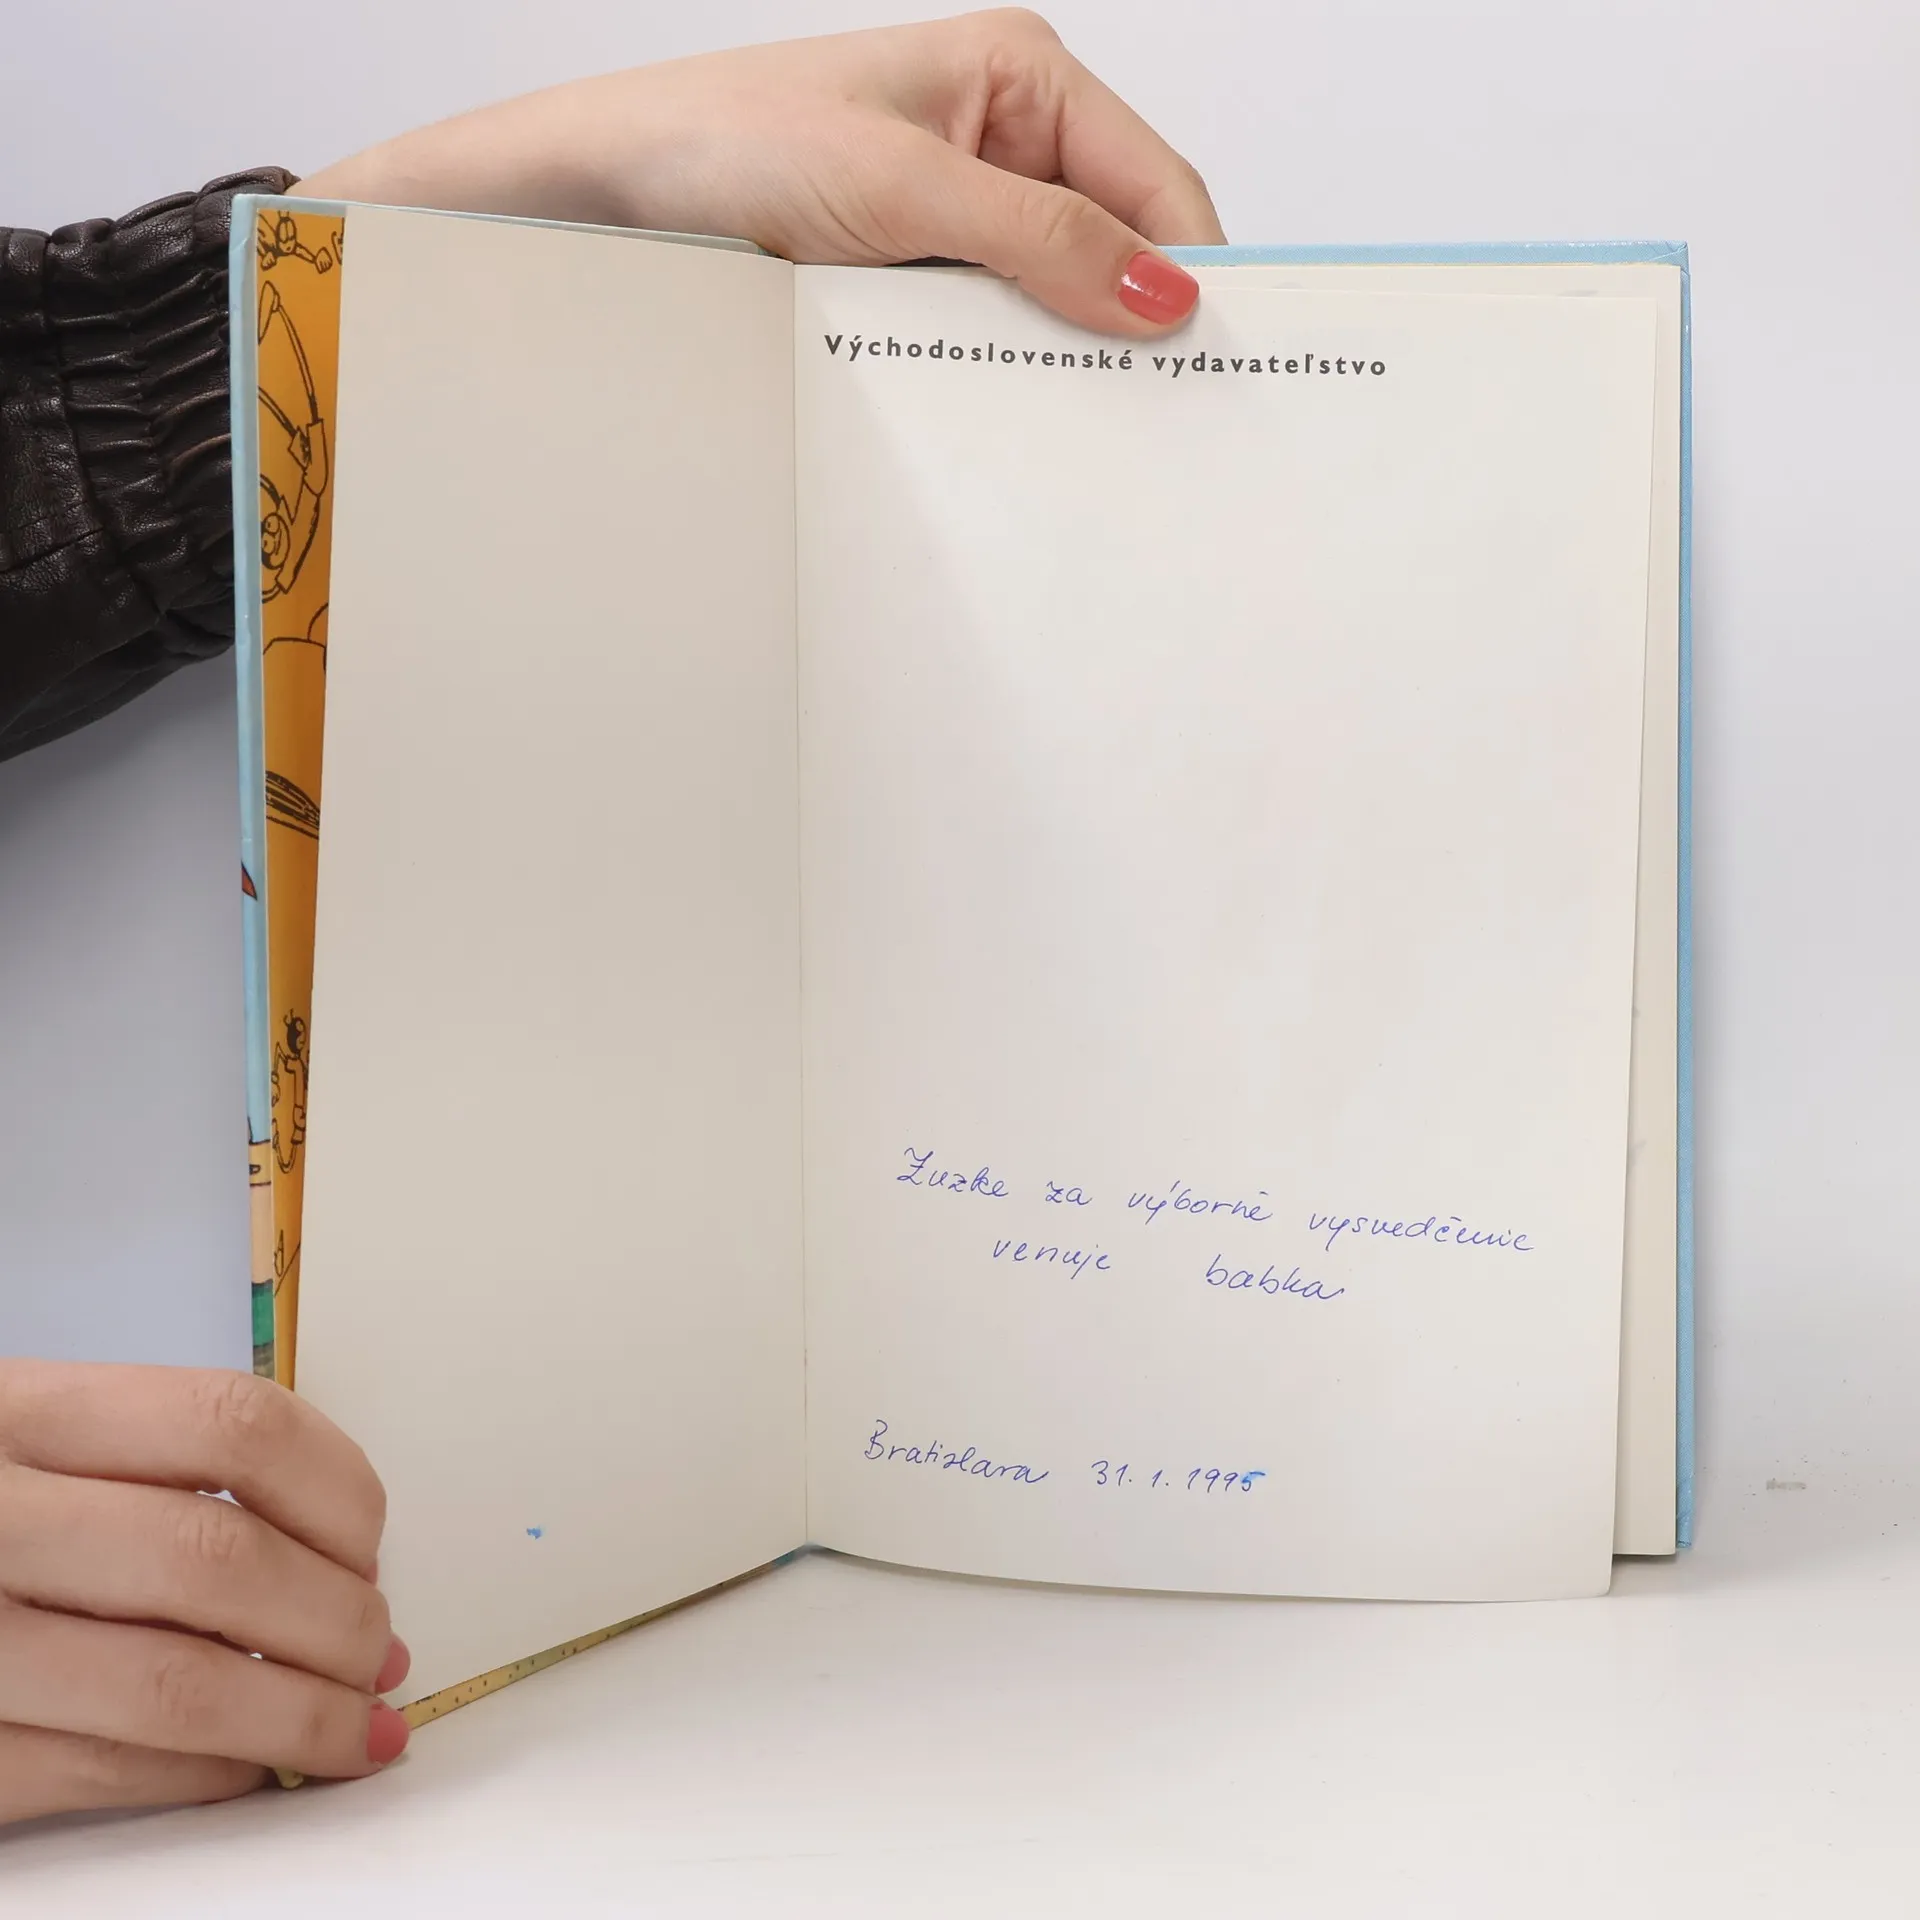 Východoslovenské vydavateľstvo
Zuzke za výborné vysvedčenie
venuje babka
Bratislava 31. 1. 1995